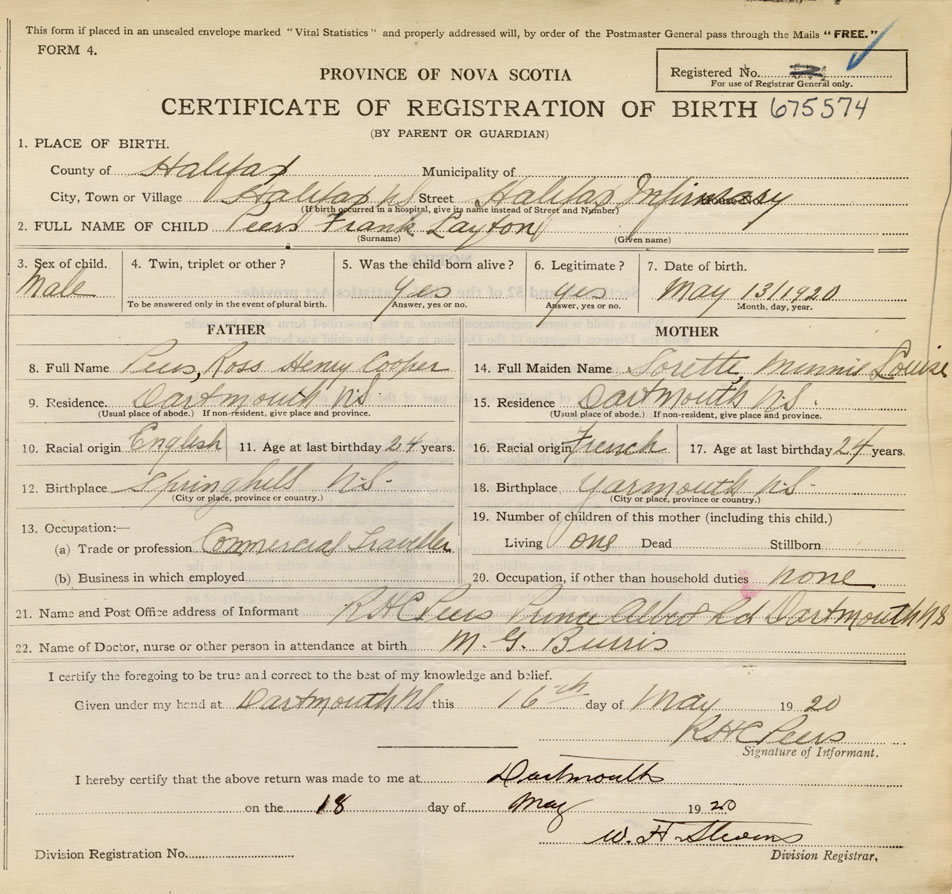 This form if placed in an unsealed envelope marked "Vital Statistics" and properly addressed will, by order of the Postmaster General pass through the Mails "FREE."
FORM 4.
PROVINCE OF NOVA SCOTIA
Registered No.
For use of Registrar General only.
CERTIFICATE OF REGISTRATION OF BIRTH 675574
(BY PARENT OR GUARDIAN)
1. PLACE OF BIRTH.
County of Halifax Municipality of
City, Town or Village Halifax NS Street Halifax Infirmary
(If birth occurred in a hospital, give its name instead of Street and Number)
2. FULL NAME OF CHILD Peers Frank Layton
(Surname) (Given name)
3. Sex of child. 4. Twin, triplet or other? 5. Was the child born alive? 6. Legitimate? 7. Date of birth.
Male yes yes May 13/1920
To be answered only in the event of plural birth. Answer, yes or no. Answer, yes or no. Month, day, year.
FATHER MOTHER
8. Full Name Peers, Ross Henry Cooper 14. Full Maiden Name Sorette, Minnie Louise
9. Residence. Dartmouth N.S. 15. Residence Dartmouth N.S.
(Usual place of abode.) If non-resident, give place and province. (Usual place of abode.) If non-resident, give place and province.
10. Racial origin English 11. Age at last birthday 24 years. 16. Racial origin French 17. Age at last birthday 24 years.
12. Birthplace Springhill N.S. 18. Birthplace Yarmouth N.S.
(City or place, province or country.) (City or place, province or country.)
13. Occupation:— 19. Number of children of this mother (including this child.)
(a) Trade or profession. Commercial Traveller Living one Dead Stillborn
(b) Business in which employed 20. Occupation, if other than household duties none
21. Name and Post Office address of Informant RHC Peers Prince Albert Rd Dartmouth NS
22. Name of Doctor, nurse or other person in attendance at birth M. G. Burris
I certify the foregoing to be true and correct to the best of my knowledge and belief.
Given under my hand at Dartmouth NS this 16th day of May 1920
RHC Peers
Signature of Informant.
I hereby certify that the above return was made to me at Dartmouth
on the 18 day of May 1920
W. H. Stevens
Division Registration No. Division Registrar.